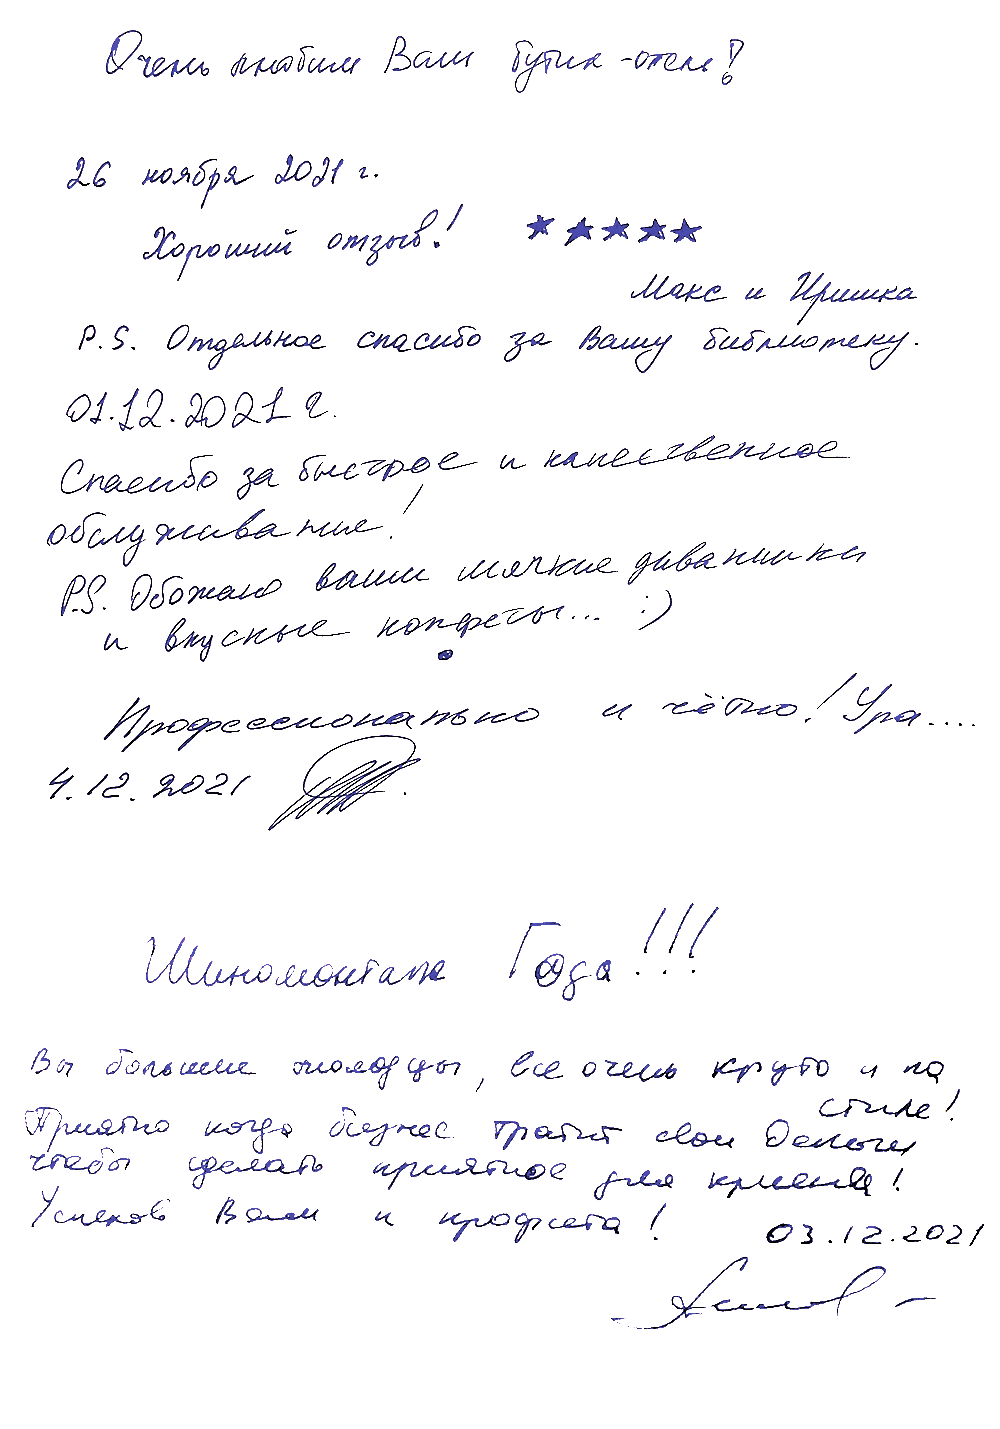 Очень любим Ваш бутик-отель!
26 ноября 2021 г.
Хороший отзыв! ★★★★★
Макс и Иришка
P.S. Отдельное спасибо за Вашу библиотеку.
01.12.2021 г.
Спасибо за быстрое и качественное
обслуживание!
P.S. Обожаю ваши мягкие диванчики
и вкусные конфеты... :)
Профессионально и чётко! Ура....
4.12.2021
Шиномонтаж Года!!!
Вы большие молодцы, все очень круто и на
стиле!
Приятно когда бизнес тратит свои деньги
чтобы сделать приятное для клиента!
Успехов Вам и профита!
03.12.2021